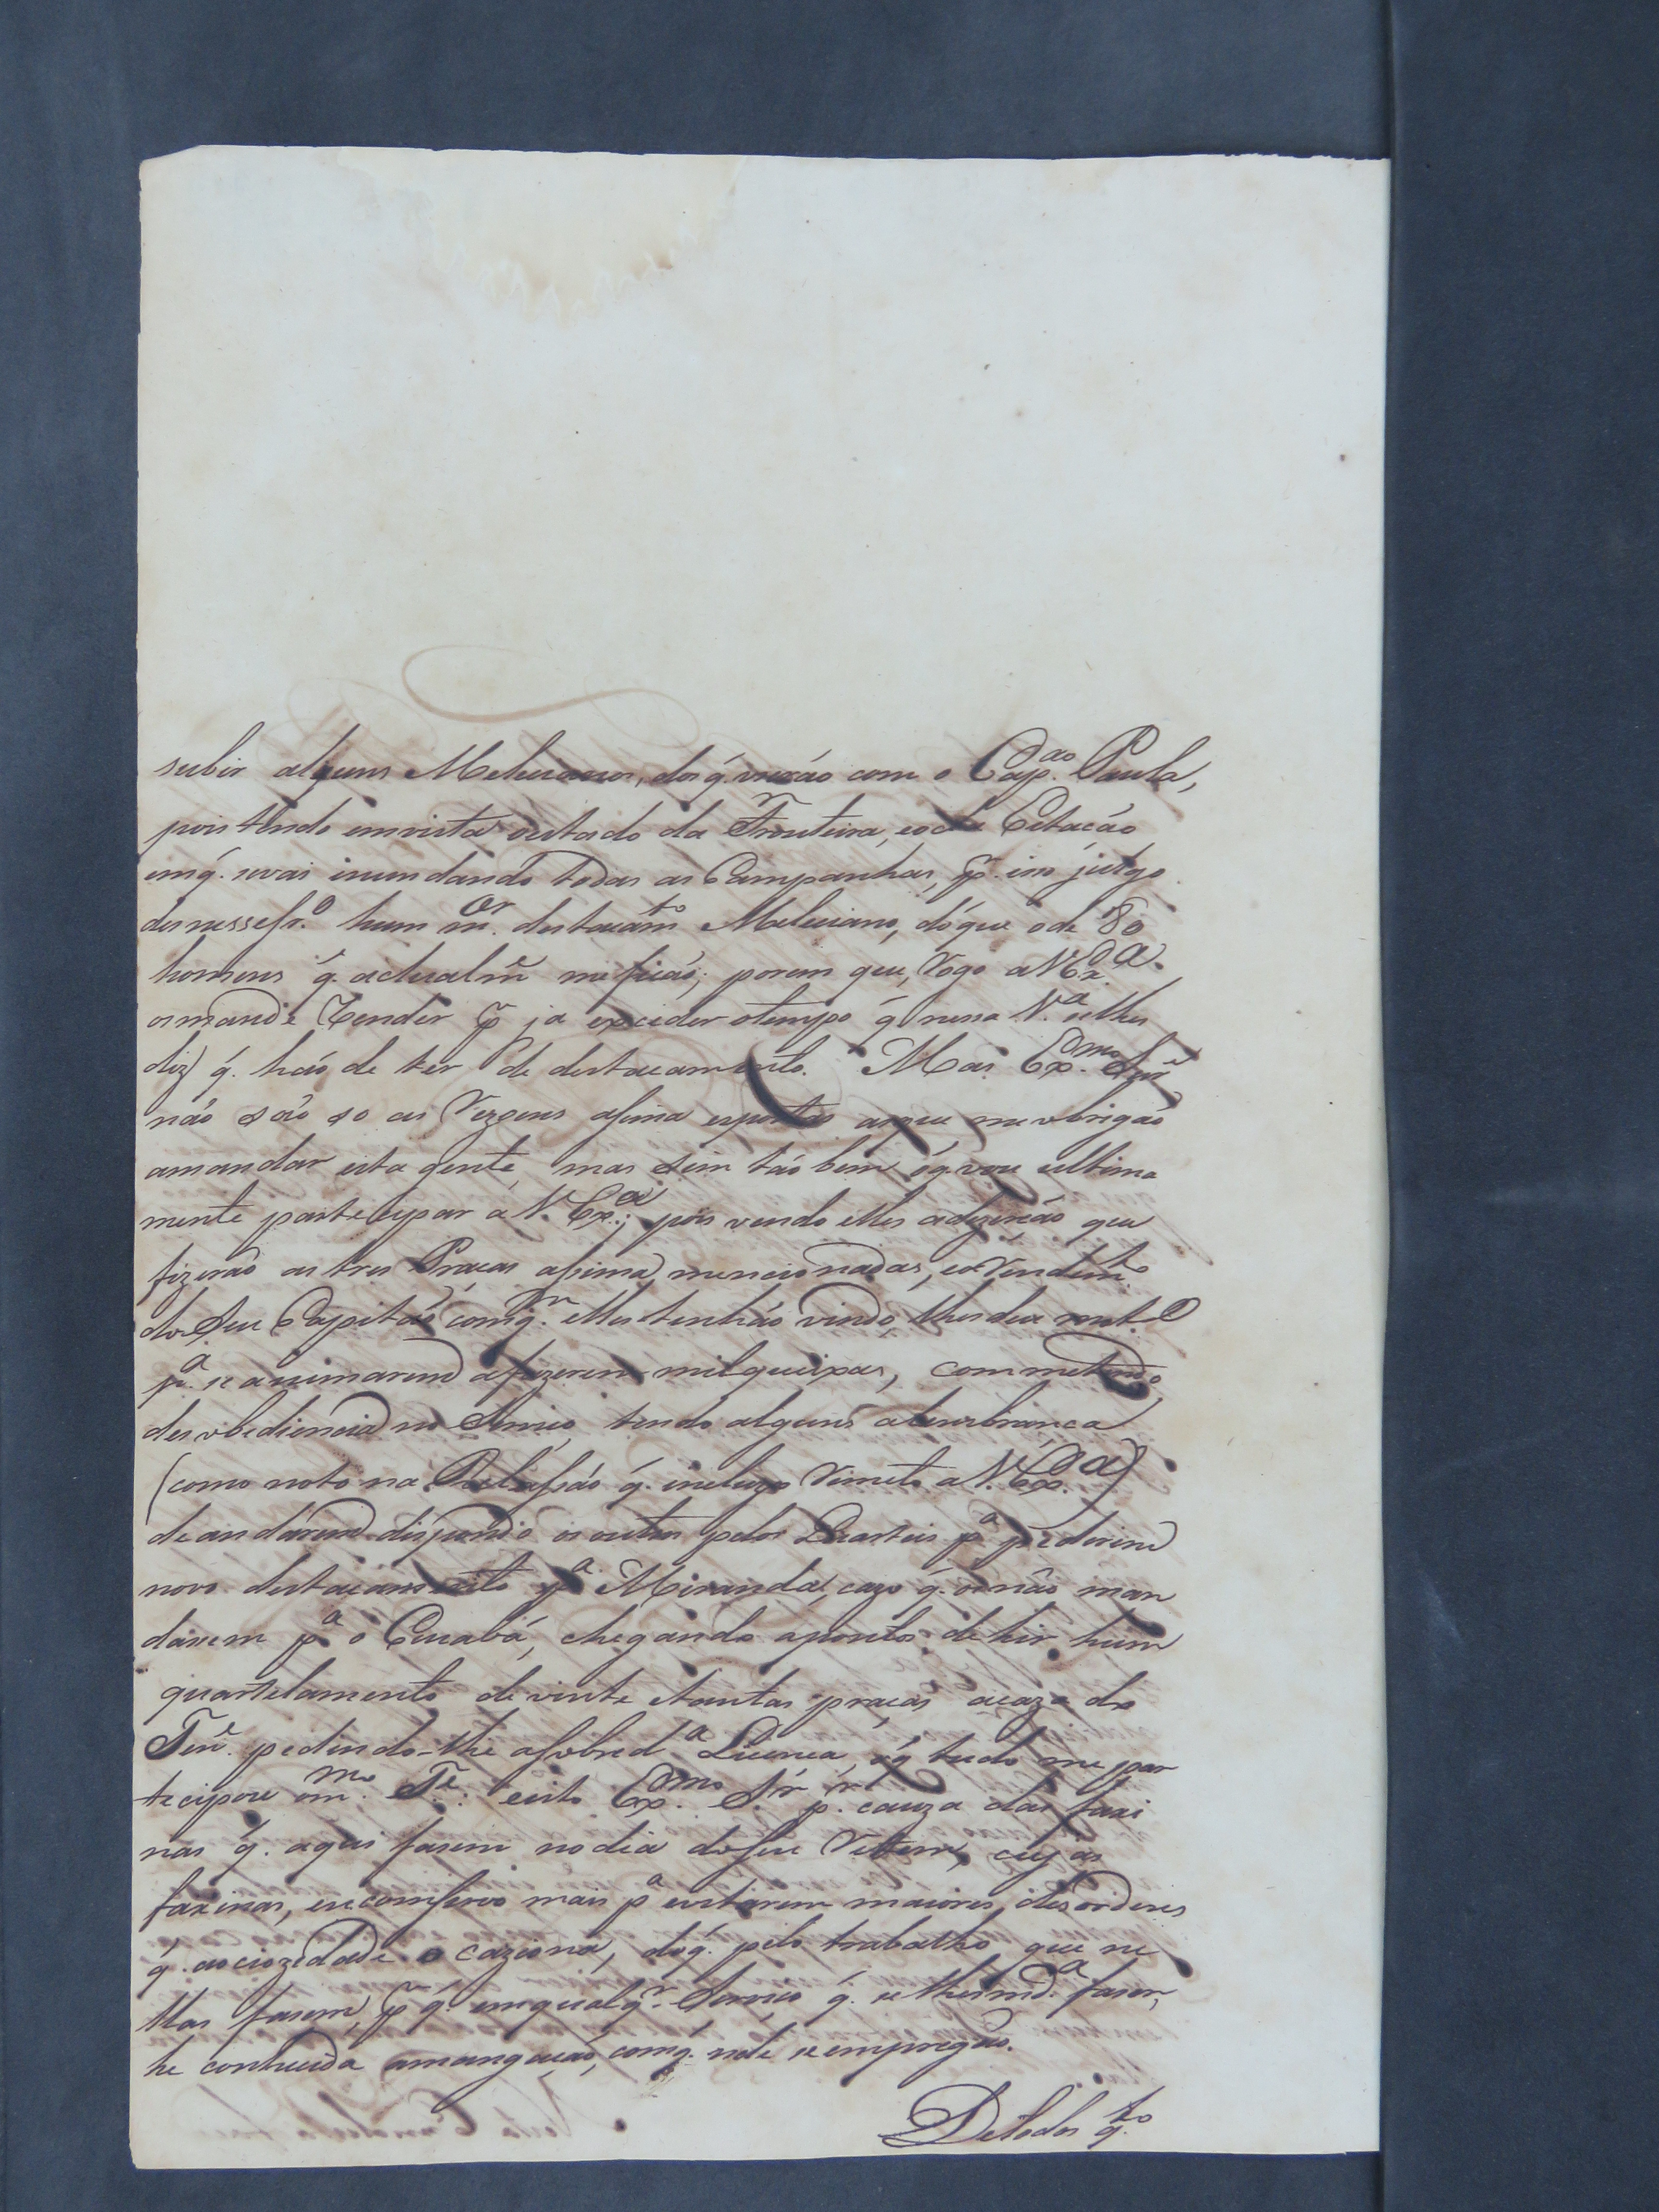 subir alguns Melicianos, dos q̃. vierão com o Cap.ão Paula,
pois tendo em vista o estado da Fronteira, e o da Estação
em q̃. se vai inundando todas as Campanhas, p̃r. isso julgo
desnessessr.o hum m.or destacam.to Meliciano, do que o de 80
homens q̃. actualm.e me ficão; porem que, Rogo a V. Ex.a
os mande Render p̃r ja exceder o tempo q̃ nessa V.a se lhes
diz q̃. hão de ter de destacamento. Mas Ex.mo Snr̃
não são so as Rezoens assima espostas as que me obrigão
a mandar esta gente, mas sim tão bem o q̃. vou ultima
mente partecipar a V. Ex.a; pois vendo elles a dezerção que
fizerão as tres Praças assima mencionadas, e o Rendim.to
do seu Capitão com q.m elles tenhão vindo, lhes deu mot.o
p.a se animarem a fazerem mil queixas, commetendo
desobediencia no Serviço, tendo alguns a lembrança
(como noto na Relassão q̃. incluzo Rimeto a V. Ex.a)
de andarem dispondo os outros pelos Quarteis p.a pederem
novo destacamento p.a Miranda, cazo q̃. os não man
dassem p.a o Cuiabá, chegando a ponto de hir hum
quartelamento de vinte e tantas praças a caza do
Ten.e pedindo-lhe a sobred.a Licença, o q̃ tudo me par
tecipou o m.mo T.e: e isto Ex.mo S.r p.r cauza das faxi
nas q̃. aqui fasem no dia do seu Retem, cujas
faxinas, eu comservo mais p.a evitarem maiores desordens
q̃. a ociozidade ocaziona, do q̃. pelo trabalho que ne
llas fasem, p̃r q̃. em qualq.r Serviço q̃. se lhes md.a faser,
he conhecida a mangação, com q̃. nele se empregão.
De todos q.to